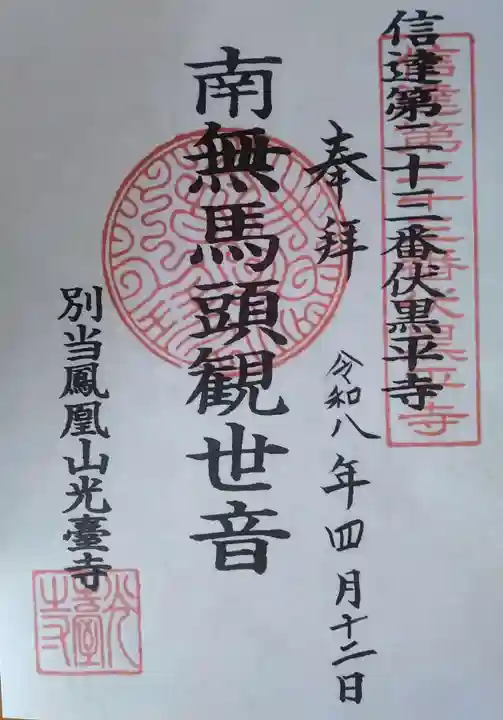 信達第二十二番伏黒平寺
奉拝
令和八年四月十二日
南無馬頭観世音
別当鳳凰山光臺寺
光臺寺